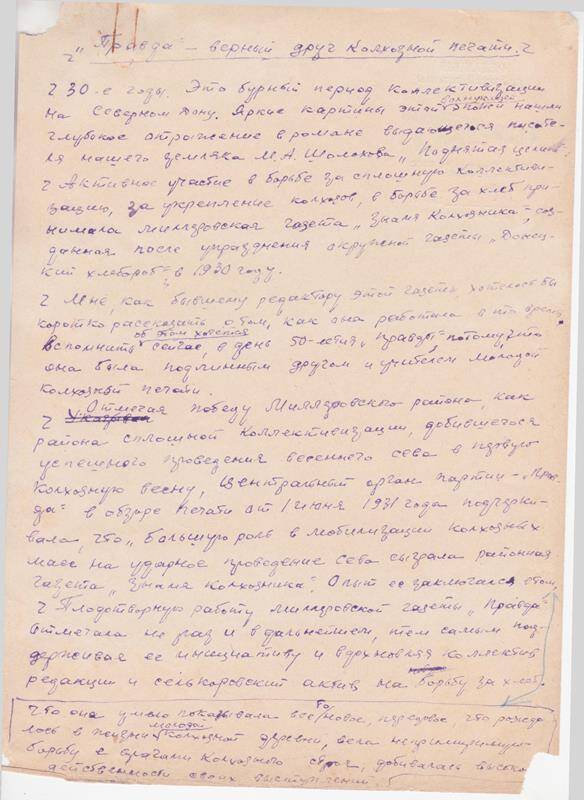 "Правда" – верный друг колхозной печати.
30-е годы. Это бурный период коллективизации
на Северном Дону. Яркие картины этой эпохи нашли
глубокое отражение в романе выдающегося писате-
ля нашего земляка М.А. Шолохова "Поднятая целина".
Активное участие в борьбе за сплошную коллективи-
зацию, за укрепление колхозов, в борьбе за хлеб при-
нимала миллеровская газета "Знамя колхозника", соз-
данная после упразднения окружной газеты "Донец-
кий хлебороб" в 1930 году.
Мне, как бывшему редактору этой газеты хотелось бы
коротко рассказать о том, как она работала в то время.
об этом хочется
Вспомнить сейчас, в день 50-летия "Правды" потому, что
она была подлинным другом и учителем молодой
колхозной печати.
Отмечая победу Миллеровского района, как
района сплошной коллективизации, добившегося
успешного проведения весеннего сева в первую
колхозную весну, Центральный орган партии – "Прав-
да" в обзоре печати от 1 июня 1931 года подчерки-
вала, что "большую роль в мобилизации колхозных
масс на ударное проведение сева сыграла районная
газета "Знамя колхозника". Опыт ее заключался в том,
Плодотворную работу миллеровской газеты "Правда"
отмечала не раз и в дальнейшем, тем самым под-
держивая ее инициативу и вдохновляя коллектив
редакции и селькоровский актив на борьбу за хлеб.
что она умело показывала все то новое, передовое что рождо
лось в жизни молодой колхозной деревни, вела непримиримую
борьбу с врагами колхозного строя, добивалась высокой
действенности своих выступлений.